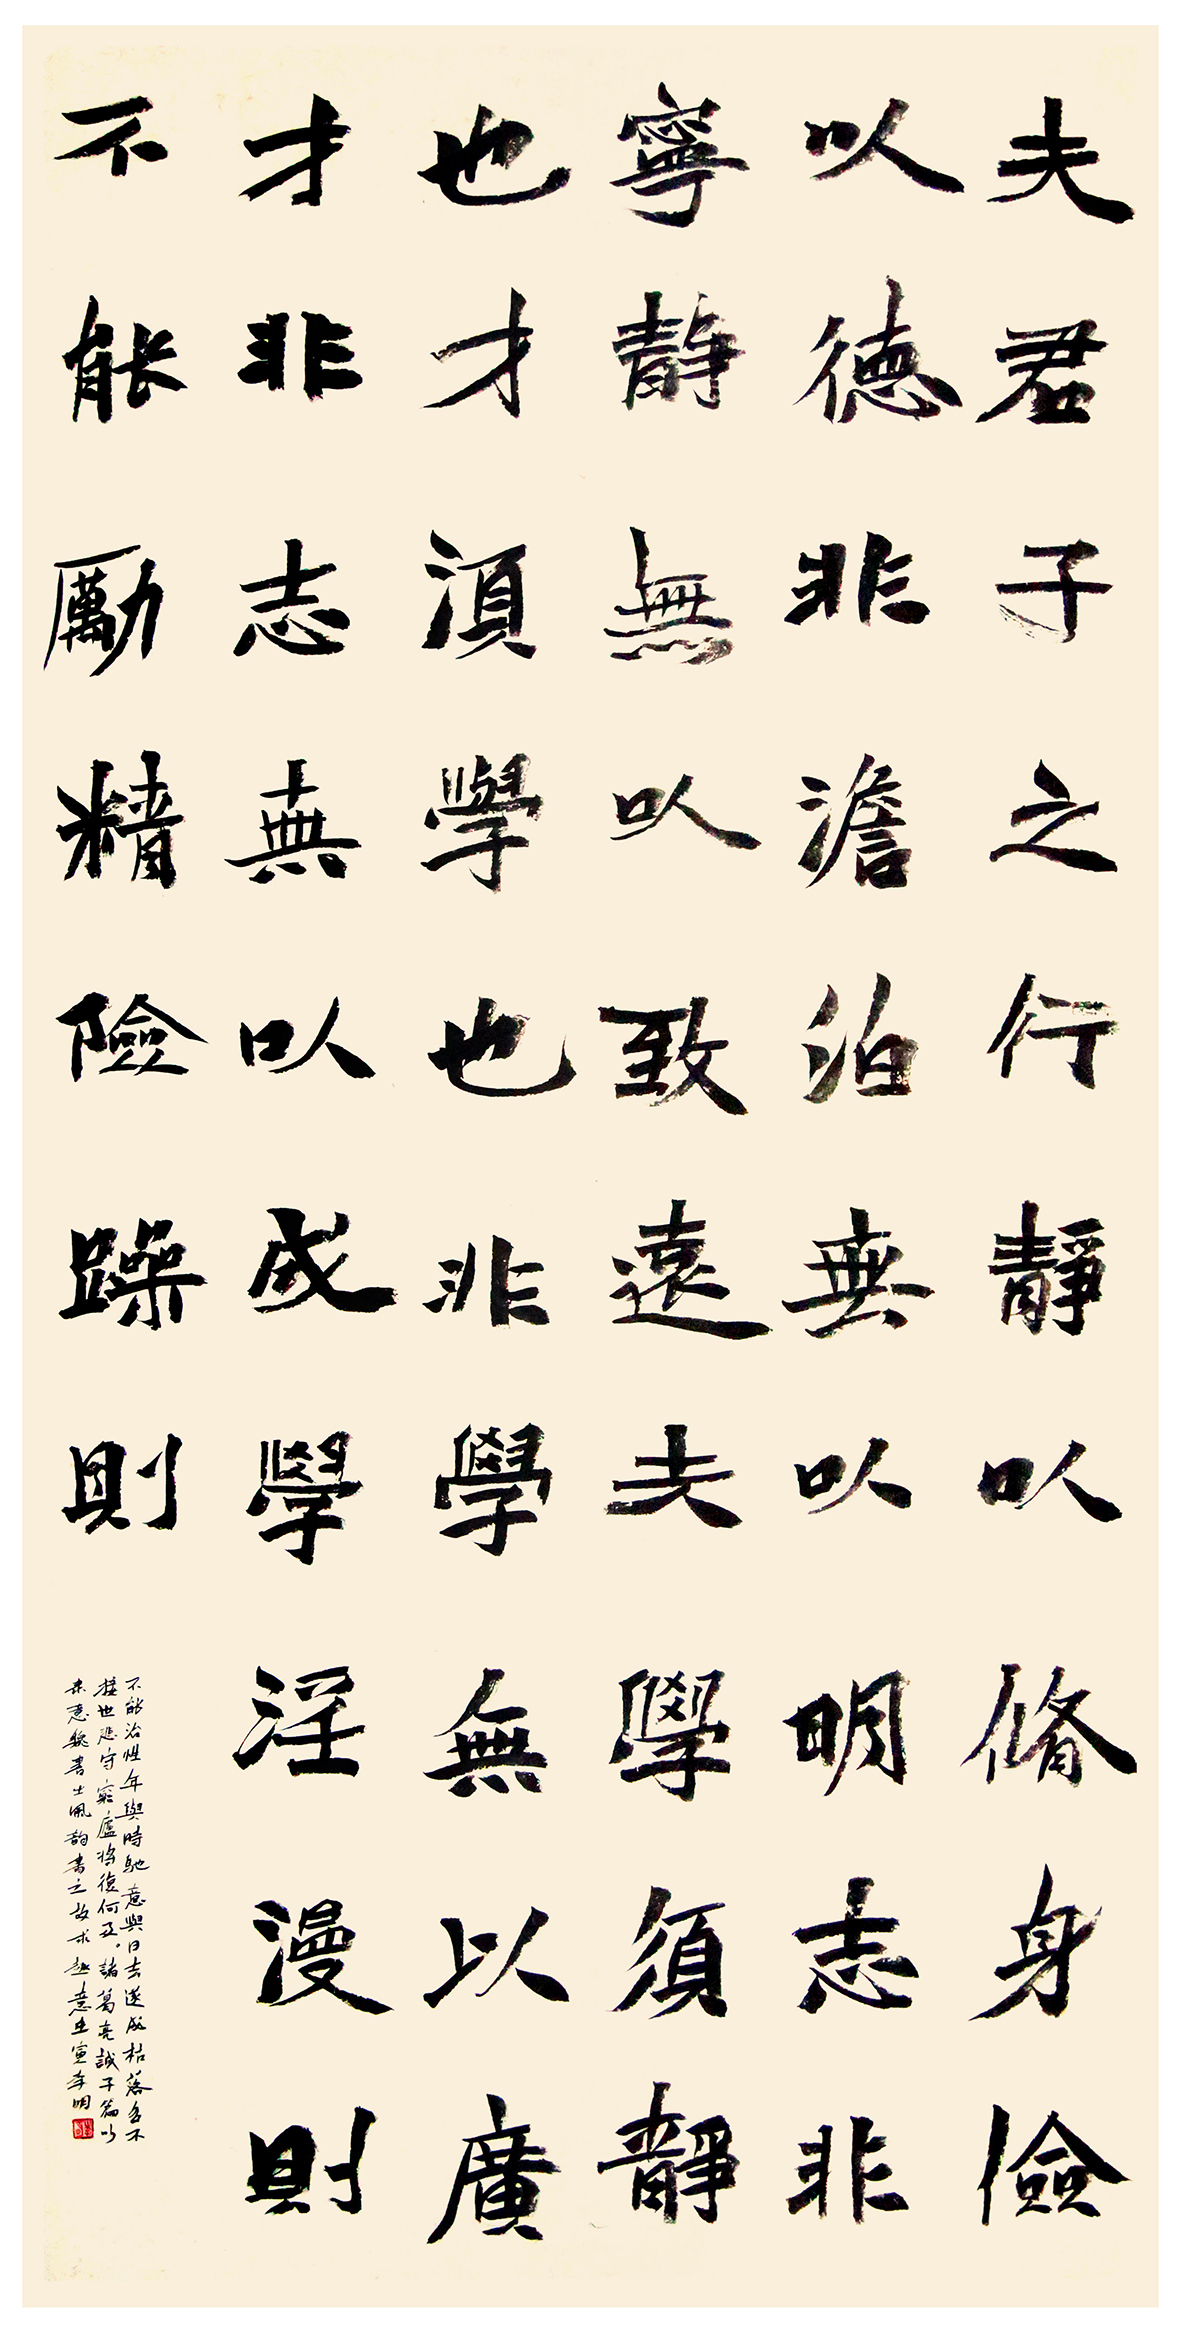 夫君子之行靜以脩身儉
以德非澹泊無以明志非
寧靜無以致遠夫學須靜
也才須學也非學無以廣
才非志無以成學淫漫則
不能勵精險躁則
不能治性年與時馳意與日去遂成枯落多不
接也悲守窮廬將復何及。諸葛亮誡子篇以
書之故求